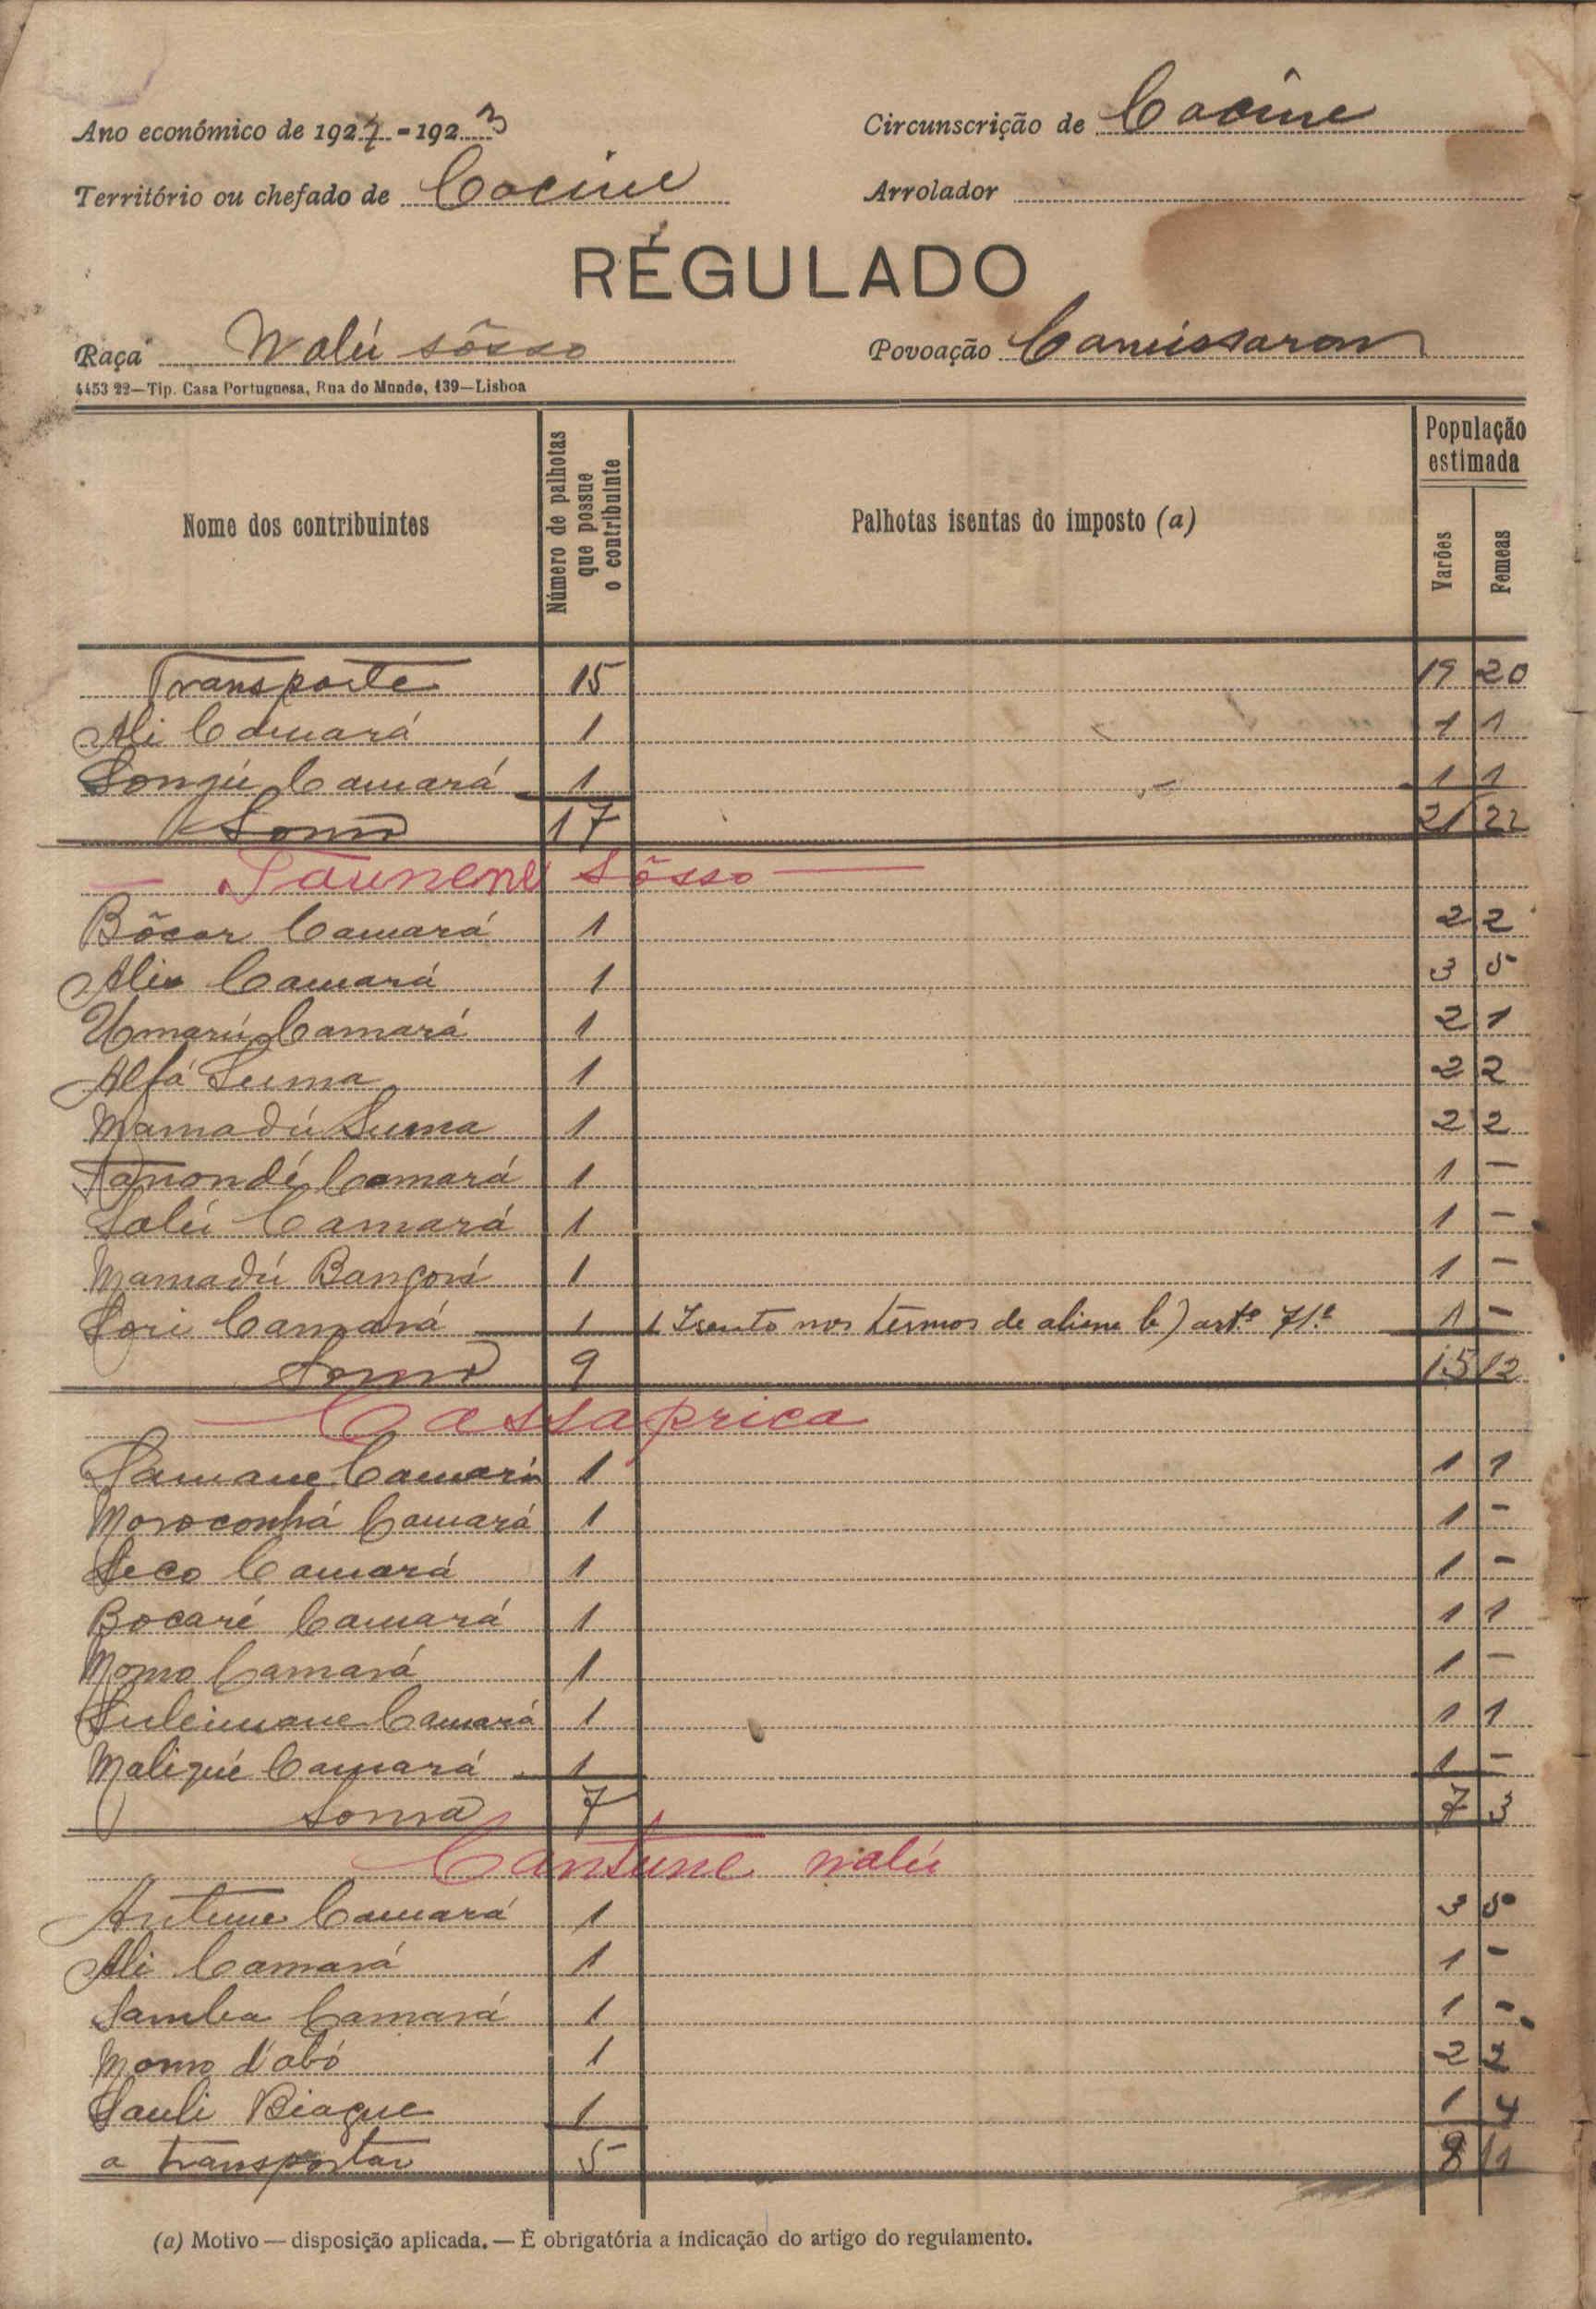 Ano económico de 1922-1923 Circunscrição de Cacine
Território ou chefado de Cacine Arrolador
RÉGULADO
Raça Nalú sôsso Povoação Camissaron
4453 22—Tip. Casa Portuguesa, Rua do Mundo, 139—Lisboa
Nome dos contribuintes Número de palhotas que possue o contribuinte Palhotas isentas do imposto (a) População estimada Varões Femeas
Transporte 15 19 20
Ali Camará 1 1 1
Camará 1 1 1
Soma 17 21 22
— Taunene Sôsso —
Bôcar Camará 1 2 2
Alia Camará 1 3 5
Umarú Camará 1 2 1
Alfá Suma 1 2 2
Mamadú Suma 1 2 2
Camará 1 1 —
Salú Camará 1 1 —
Mamadú Bangorá 1 1 —
Sori Camará 1 1 Isento nos termos de alinea b) artº 71.º 1 —
Soma 9 15 12
Cassaprica
Camará 1 1 1
Moroconhá Camará 1 1 —
Seco Camará 1 1 —
Bocaré Camará 1 1 1
Momo Camará 1 1 —
Suleimane Camará 1 1 1
Maliqué Camará 1 1 —
Soma 7 7 3
Cantune nalú
Antune Camará 1 3 5
Ali Camará 1 1 —
Samba Camará 1 1 —
Momo d'abó 1 2 2
Sauli Biague 1 1 4
a transportar 5 8 11
(a) Motivo — disposição aplicada. — É obrigatória a indicação do artigo do regulamento.